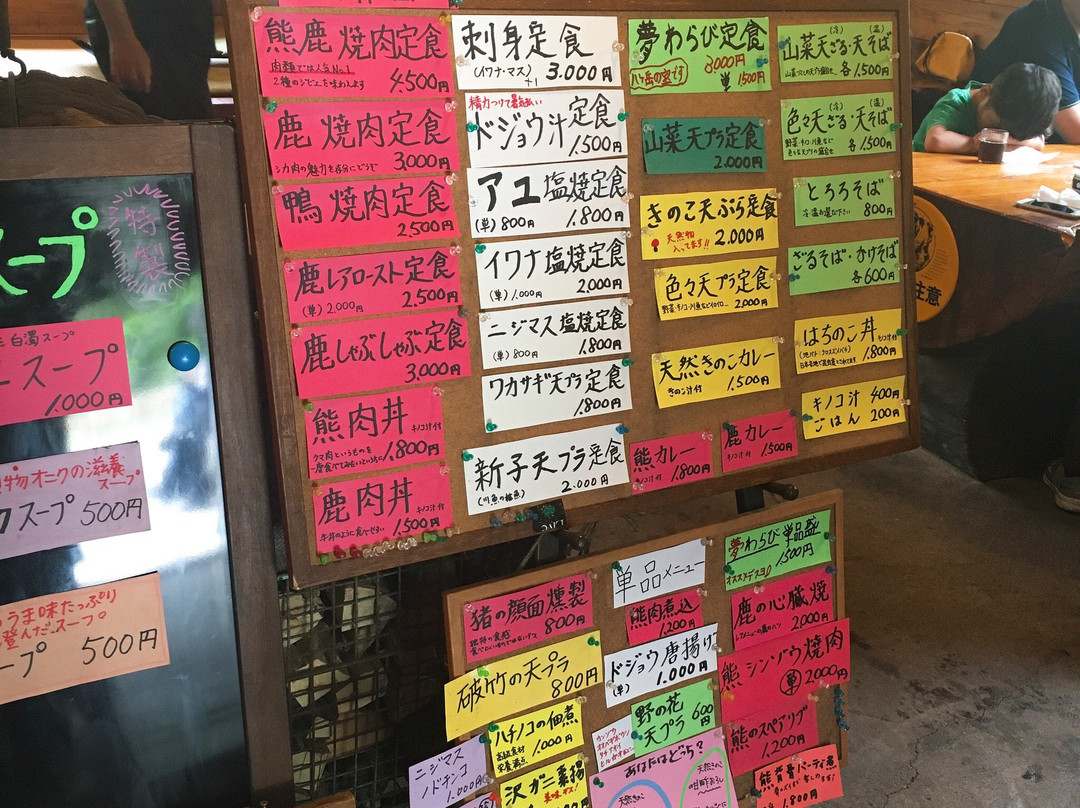 熊鹿焼肉定食
肉類では人気No.1
2種のジビエを味わえます
4.500円
鹿焼肉定食
3.000円
シカ肉の魅力を存分にどうぞ
鴨焼肉定食
2.500円
鹿レアロースト定食
(単)2.000円
2.500円
鹿しゃぶしゃぶ定食
3.000円
熊肉丼
キノコ汁付
1.800円
クマ肉というものを
鹿肉丼
キノコ汁付
1.500円
刺身定食
(イワナ・マス)
3.000円
精力つけて暑気払い
ドジョウ汁定食
1.500円
アユ塩焼定食
(単)800円
1.800円
イワナ塩焼定食
(単)1.000円
2.000円
ニジマス塩焼定食
(単)800円
1.800円
ワカサギ天プラ定食
1.800円
新子天プラ定食
(川魚の稚魚)
2.000円
夢わらび定食
3000円
1500円
山菜天プラ定食
2.000円
きのこ天ぷら定食
天然物
入ってます!!
2.000円
色々天プラ定食
2.000円
天然きのこカレー
きのこ汁付
1.500円
熊カレー
キノコ汁付
1.800円
鹿カレー
キノコ汁付
1.500円
(冷)(温)
山菜天ざる・天そば
各1.500円
(冷)(温)
色々天ざる・天そば
各1.500円
とろろそば
冷・温お選び下さい
800円
ざるそば・かけそば
各600円
はちのこ丼
キノコ汁付
1.800円
キノコ汁 400円
ごはん 200円
注意
スープ
特製
白濁スープ
ースープ
1.000円
物オニクの滋養
スープ
クスープ 500円
うま味たっぷり
スープ
ープ 500円
単品メニュー
夢わらび単品盛
1.500円
オススメデスヨ
猪の顔面燻製
独特の食感
800円
熊肉煮込
1.200円
鹿の心臓焼
2.000円
破竹の天プラ
800円
ドジョウ唐揚げ
(単)
1.000円
熊シンゾウ焼肉
(単)2000円
ハチノコの佃煮
高級食材
栄養満点
1.000円
野の花
天プラ
600円
熊のスペアリブ
1.200円
ニジマス
ノドチンコ
1.000円
沢ガニ素揚
美味ぞ!
あなたはどっち?
天然きのこ
1.800円